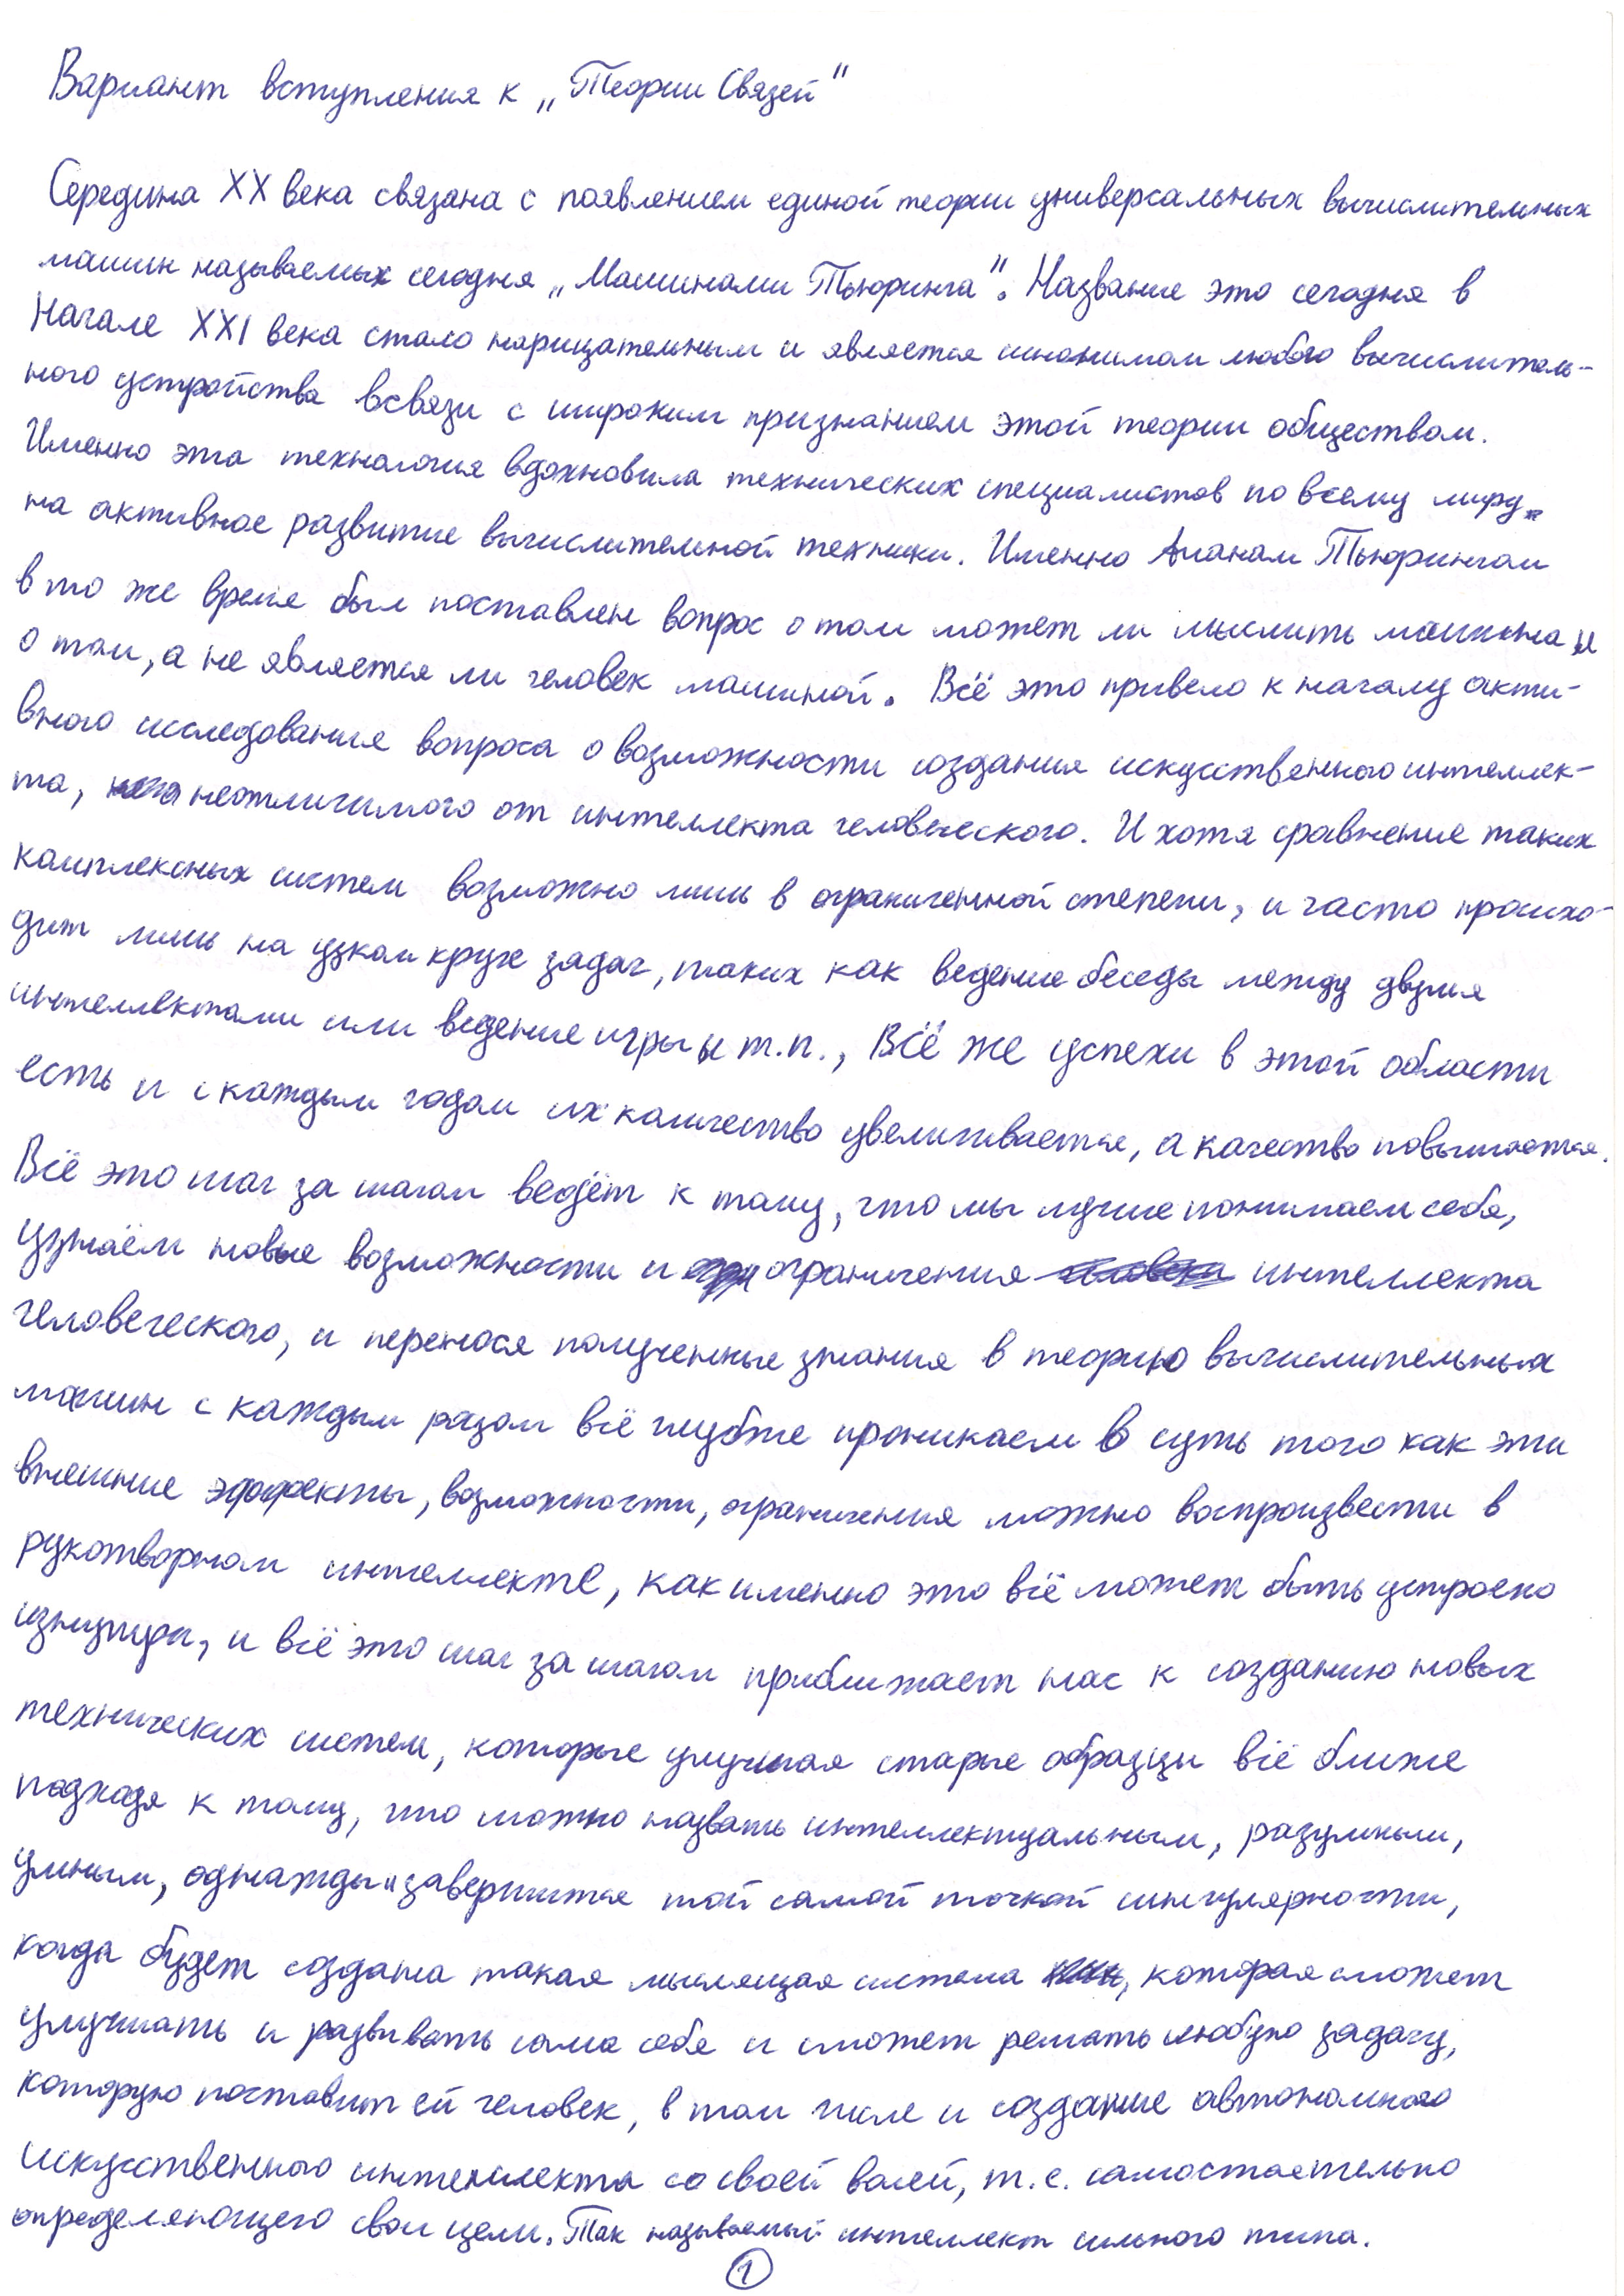 Вариант вступления к „Теории Связей"
Середина XX века связана с появлением единой теории универсальных вычислительных
машин называемых сегодня „Машинами Тьюринга". Название это сегодня в
Начале XXI века стало нарицательным и является синонимом любого вычислитель-
ного устройства всвязи с широким признанием этой теории обществом.
Именно эта технология вдохновила технических специалистов по всему миру
на активное развитие вычислительной техники. Именно Аланом Тьюрингом
в то же время был поставлен вопрос о том может ли мыслить машина и
о том, а не является ли человек машиной. Всё это привело к началу акти-
вного исследования вопроса о возможности создания искусственного интеллек-
та, неотличимого от интеллекта человеческого. И хотя сравнение таких
комплексных систем возможно лишь в ограниченной степени, и часто происхо-
дит лишь на узком круге задач, таких как ведение беседы между двумя
интеллектами или ведение игры и т.п., Всё же успехи в этой области
есть и с каждым годом их количество увеличивается, а качество повышается.
Всё это шаг за шагом ведёт к тому, что мы лучше понимаем себя,
узнаём новые возможности и ограничения интеллекта
человеческого, и перенося полученные знания в теорию вычислительных
машин с каждым разом всё глубже проникаем в суть того как эти
внешние эффекты, возможности, ограничения можно воспроизвести в
рукотворном интеллекте, как именно это всё может быть устроено
изнутри, и всё это шаг за шагом приближает нас к созданию новых
технических систем, которые улучшая старые образцы всё ближе
подходя к тому, что можно назвать интеллектуальным, разумным,
умным, однажды завершится той самой точкой сингулярности,
когда будет создана такая мыслящая система, которая сможет
улучшать и развивать сама себя и сможет решать любую задачу,
которую поставит ей человек, в том числе и создание автономного
искусственного интеллекта со своей волей, т.е. самостоятельно
определяющего свои цели. Так называемый интеллект сильного типа.
1